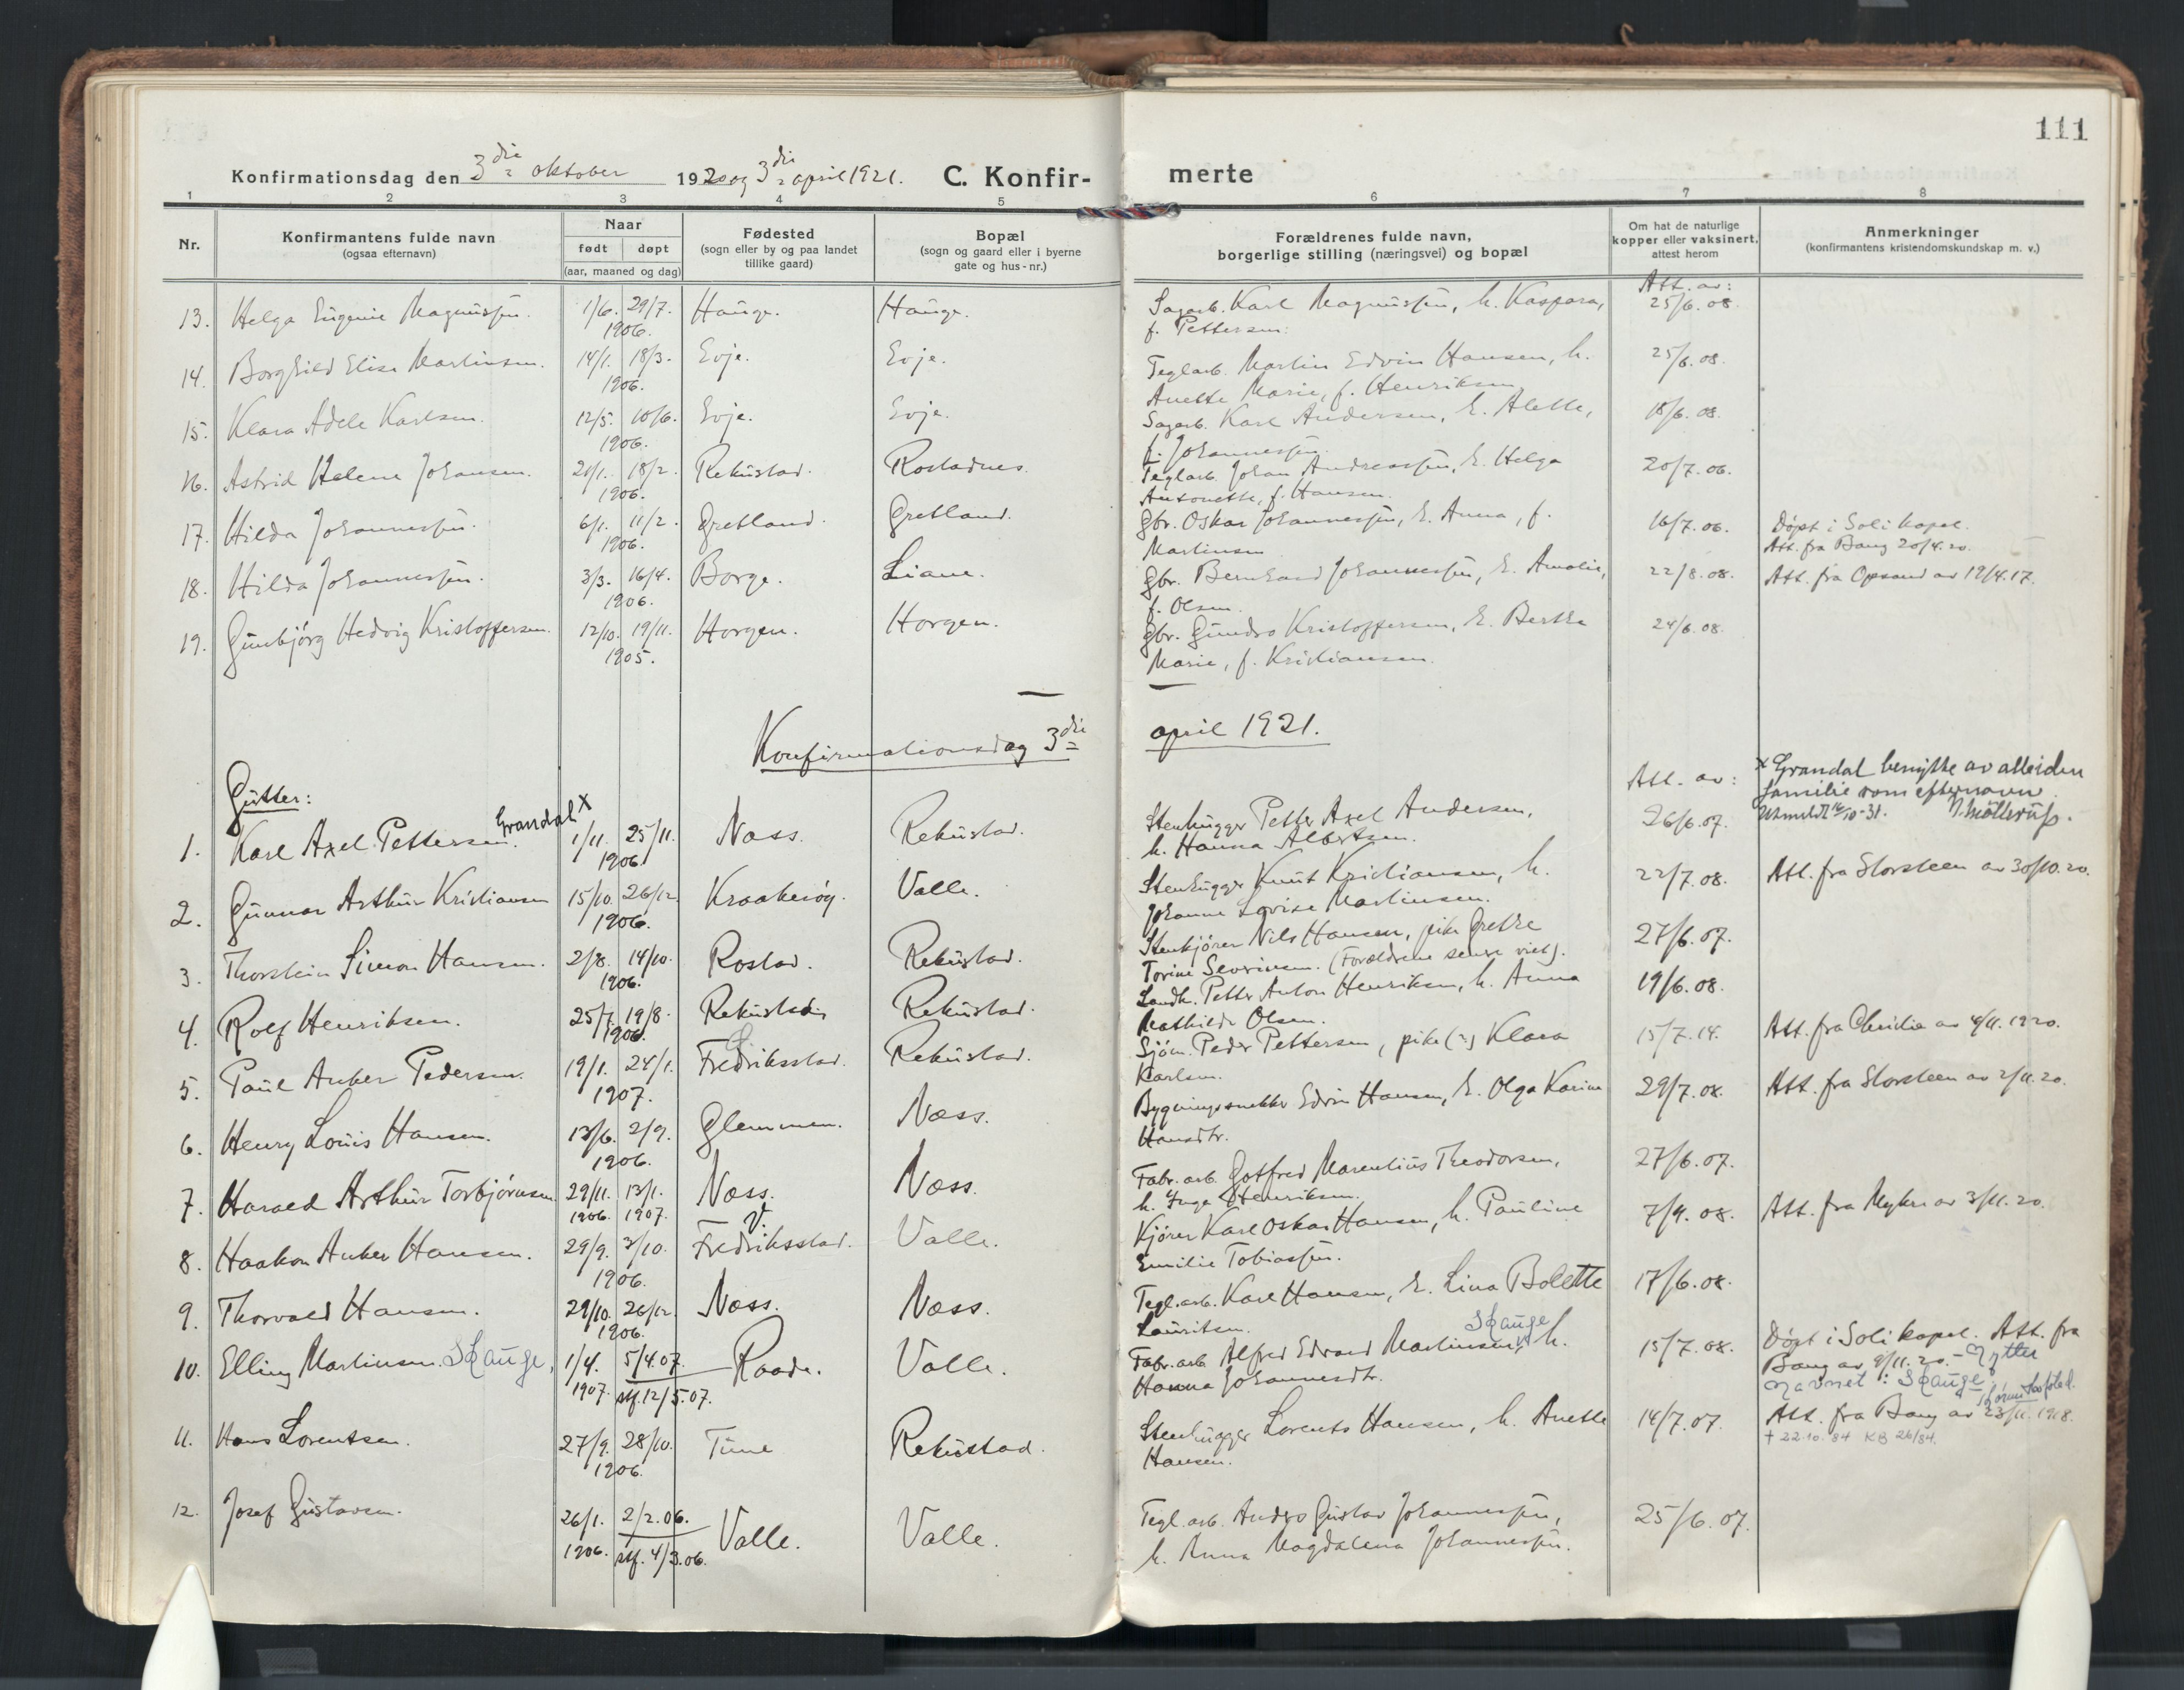 111
Konfirmationsdag den 3die oktober 1920 og 3die april 1921. C. Konfir-merte
1 2 3 4 5 6 7 8
Nr.
Konfirmantens fulde navn
(ogsaa efternavn)
Naar
født døpt
(aar, maaned og dag)
Fødested
(sogn eller by og paa landet
tillike gaard)
Bopæl
(sogn og gaard eller i byerne
gate og hus-nr.)
Forældrenes fulde navn,
borgerlige stilling (næringsvei) og bopæl
Om hat de naturlige
kopper eller vaksinert,
attest herom
Anmerkninger
(konfirmantens kristendomskundskap m. v.)
Att. av:
13. Helga Eugenie Magnussen. 1/6. 29/7. Hauge. Hauge. Sagarb. Karl Magnussen, h. Kaspara, 25/6.08.
1906. f. Pettersen.
14. Borghild Elise Martinsen. 14/1. 18/3. Evje. Evje. Teglarb. Martin Edvin Hansen, h. 25/6.08.
1906. Anette Marie, f. Henriksen.
15. Klara Adele Karlsen. 12/5. 10/6. Evje. Evje. Sagarb. Karl Andersen, h. Alette, 18/6.08.
1906. f. Johannessen.
16. Astrid Helene Johansen. 21/1. 18/2. Rekustad. Rostadnes. Teglarb. Johan Andreassen, h. Helga 20/7.06.
1906. Antonette, f. Hansen.
17. Hilda Johannessen. 6/1. 11/2. Gretland. Gretland. Gbr. Oskar Johannessen, h. Anna, f. 16/7.06. Døpt i Soli kapel.
1906. Martinsen Att. fra Bang 20/4.20.
18. Hilda Johannessen. 3/3. 16/4. Borge. Liane. Gbr. Bernhard Johannessen, h. Amalie, 22/8.08. Att. fra Opsand av 19/4.17.
1906. f. Olsen.
19. Gunbjørg Hedvig Kristoffersen. 12/10. 19/11. Horgen. Horgen. Gbr. Gundro Kristoffersen, h. Berthe 24/6.08.
1905. Marie, f. Kristiansen.
Konfirmationsdag 3die april 1921.
Gutter: Att. av: x Grandal benytte av alleiden
familie som efternavn.
Utmeldt 16/10-31.
1. Karl Axel Pettersen. Grandal x 1/11. 25/11. Næss. Rekustad. Stenhugger Petter Axel Andersen, 26/6.07.
1906. h. Hanna Albertsen.
2. Gunnar Arthur Kristiansen 15/10. 26/12. Kraakerøy. Valle. Stenhugger Knut Kristiansen, h. 22/7.08. Att. fra Storsteen av 30/10.20.
1906. Johanne Lovise Martinsen.
3. Thorstein Simon Hansen. 2/8. 14/10. Rostad. Rekustad. Stenkjører Nils Hansen, pike Grethe 27/6.07.
1906. Torine Severinsen. (Forældrene senere viet).
4. Rolf Henriksen. 25/7. 19/8. Rekustad. Rekustad. Landh. Petter Anton Henriksen, h. Anna 19/6.08.
1906. Mathilde Olsen.
5. Paul Anker Pedersen. 19/1. 24/1. Fredriksstad. Rekustad. Sjøm. Peder Pettersen, pike (?) Klara 15/7.14. Att. fra Christie av 4/11.1920.
1907. Karlsen.
6. Henry Louis Hansen. 13/6. 2/9. Glemmen. Næss. Bygningssnekker Edvin Hansen, h. Olga Karine 29/7.08. Att. fra Storsteen av 2/11.20.
1906. Hansdtr.
7. Harald Arthur Torbjørnsen 29/11. 13/1. Næss. Næss. Fabr. arb. Gotfred Marentius Theodorsen, 27/6.07.
1906. 1907. h. Inga Henriksen.
8. Haakon Anker Hansen. 29/9. 3/10. V. Fredriksstad. Valle. Kjører Karl Oskar Hansen, h. Pauline 7/9.08. Att. fra Nykrr av 3/11.20.
1906. Emilie Tobiassen.
9. Thorvald Hansen. 29/10. 26/12. Næss. Næss. Tegl.arb. Karl Hansen, h. Lina Bolette 17/6.08.
1906. Lauritsen.
10. Elling Martinsen. Skauge, 1/4. 5/4.07. Raade. Valle. Fabr. arb. Alfred Edvard Martinsen, Skauge h. 15/7.08. Døpt i Soli kapel. Att. fra
1907. stf. 12/5.07. Hanna Johannesdtr. Bang av 9/11.20. - Nytter
navnet: Skauge
11. Hans Lorentsen. 27/9. 28/10. Tune Rekustad. Stenhugger Lorents Hansen, h. Anette 14/7.07. Att. fra Bang av 23/11.1918.
1906. Hansen. † 22.10.84 KB 26/84.
12. Josef Gustavsen. 26/1. 2/2.06. Valle. Valle. Tegl.arb. Andro Gustav Johannessen, 25/6.07.
1906. stf. 4/3.06. h. Anna Magdalena Johannessen.